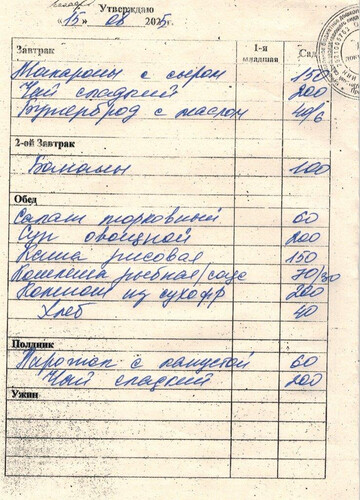 Утверждаю
«15» 08 2025г.
Завтрак 1-я младшая Сад
Макароны с сыром 150
Чай сладкий 200
Бутерброд с маслом 40/6
2-ой Завтрак
Бананы 100
Обед
Салат морковный 60
Суп овощной 200
Каша рисовая 150
Котлета рыбная/соус 70/30
Компот из сухофр 200
Хлеб 40
Полдник
Пирожок с капустой 60
Чай сладкий 200
Ужин